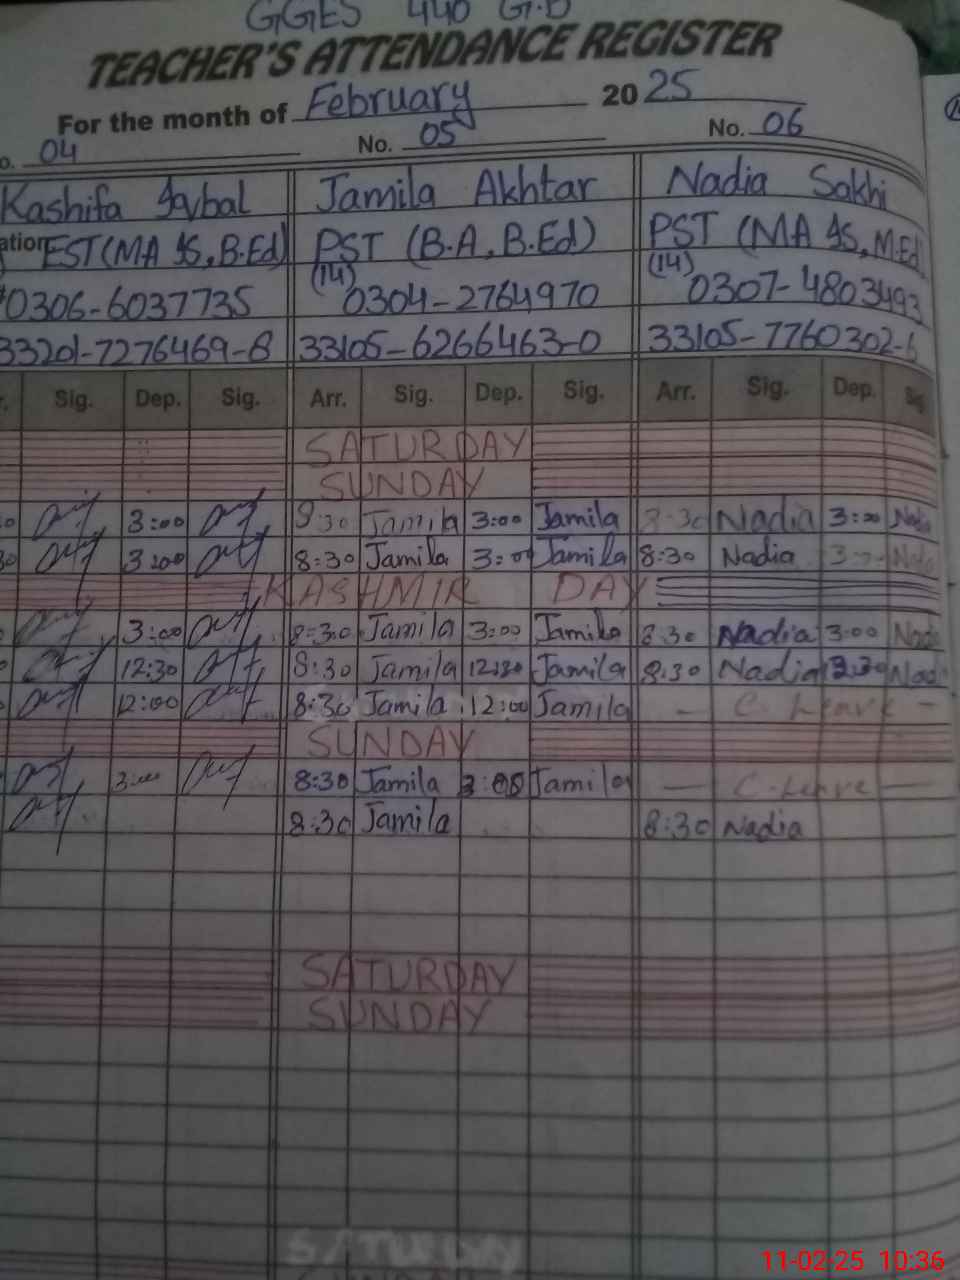 GGES 440 G.B
TEACHER'S ATTENDANCE REGISTER
For the month of February 2025
o. 04 No. 05 No. 06
Kashifa Iqbal Jamila Akhtar Nadia Sakhi
ation EST (MA IS, B.Ed) PST (B.A, B.Ed) PST (MA IS, M.Ed)
(14) (14)
0306-6037735 0304-2764970 0307-4803493
33201-7276469-8 33105-6266463-0 33105-7760302-6
r. Sig. Dep. Sig. Arr. Sig. Dep. Sig. Arr. Sig. Dep. Sig
SATURDAY
SUNDAY
3:00 8:30 Jamila 3:00 Jamila 8:30 Nadia 3:00 Nadia
3:00 8:30 Jamila 3:00 Jamila 8:30 Nadia
KASHMIR DAY
3:00 8:30 Jamila 3:00 Jamila 8:30 Nadia 3:00 Nadia
12:30 8:30 Jamila 12:30 Jamila 8:30 Nadia Nadia
12:00 8:30 Jamila 12:00 Jamila — C. Leave —
SUNDAY
3:00 8:30 Jamila 3:00 Jamila — C. Leave —
8:30 Jamila 8:30 Nadia
SATURDAY
SUNDAY
SATURDAY
11-02-25 10:36